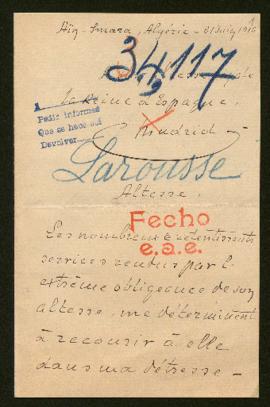 Aïn-Smara, Algérie - 31 Juin 1916
34117
la Reine d'Espagne,
Madrid
Pedir informes
Que se hace así
Devolver
Larousse
Altesse,
Fecho
e.a.e.
Les nombreux & retentissants
services rendus par l'
extrême obligeance de son
altesse, me déterminent
à recourir à elle
dans ma détresse -